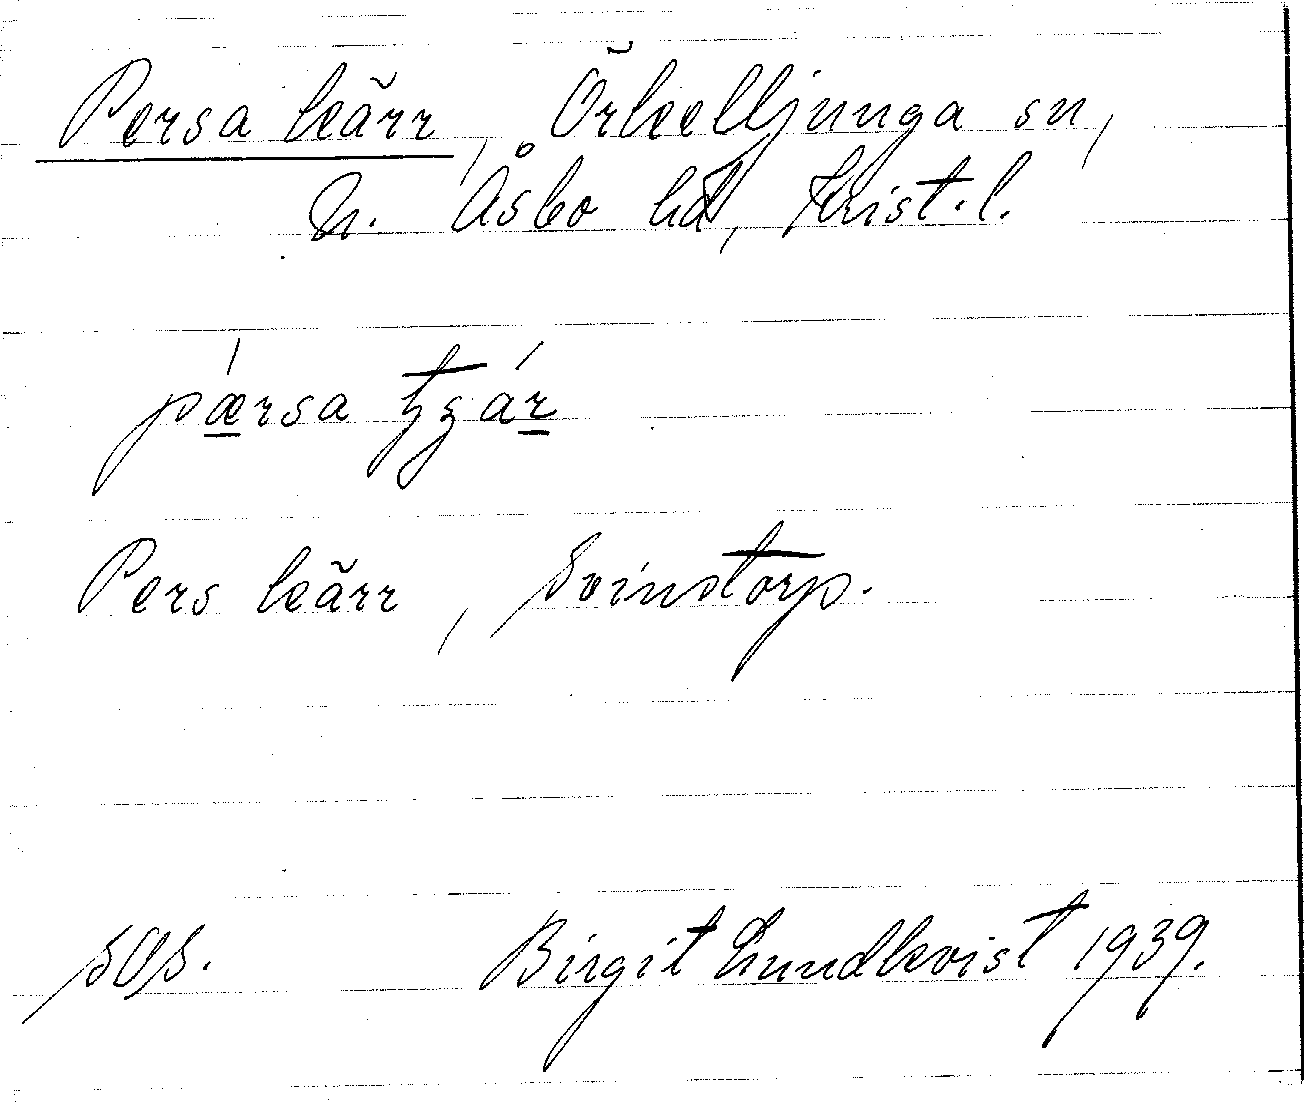 Persa kärr, Örkelljunga sn,
N. Åsbo hd, Krist. l.
pǽrsa tʒár
Pers kärr, Svinstorp.
SOS. Birgit Lundkvist 1939.